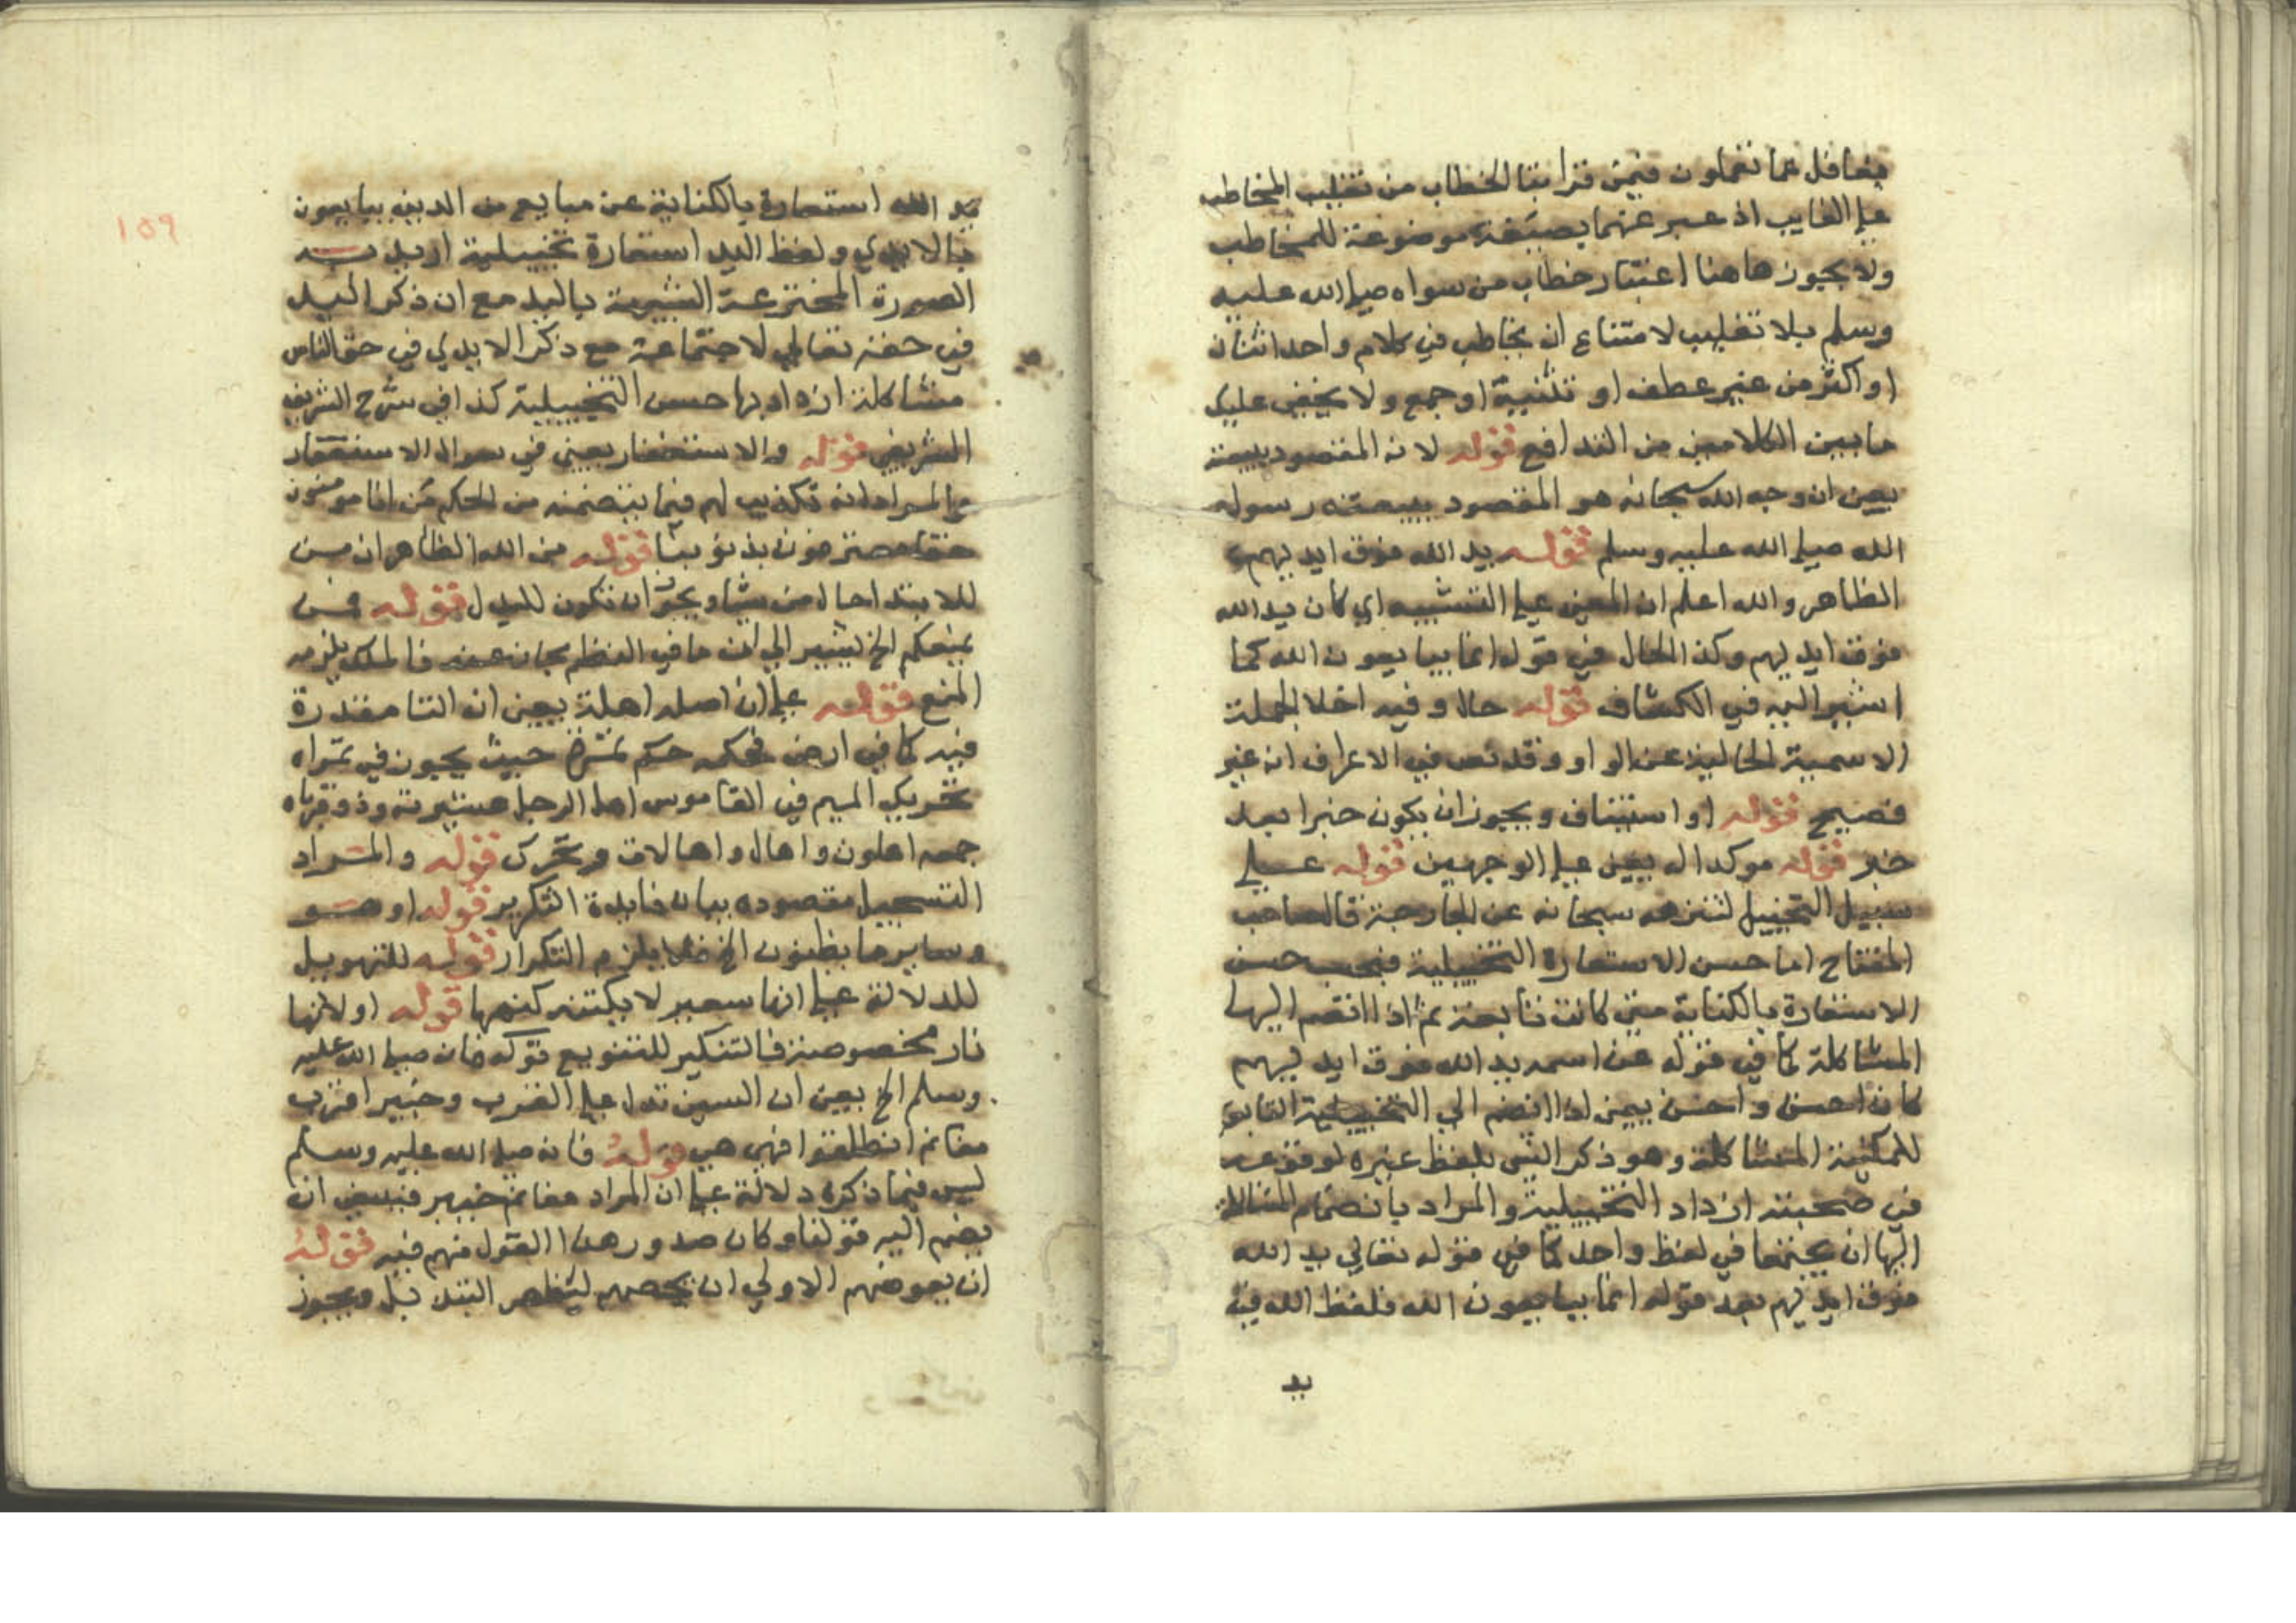 بغافل عما تعملون فيمن قرا بتا الخطاب من تغليب المخاطب
علي الغايب اذ عبر عنهما بصيغة موضوعة للمخاطب
ولا يجوز هاهنا اعتبار خطاب من سواه صلي الله عليه
وسلم بلا تغليب لامتناع ان يخاطب في كلام واحد اثنان
او اكثر من غير عطف او تثنية او جمع ولا يخفي عليك
ما بين الكلامين من التدافع قوله لانه المقصود ببيعته
يعني ان وجه الله سبحانه هو المقصود ببيعته رسوله
الله صلي الله عليه وسلم قوله يد الله فوق ايديهم
الظاهر والله اعلم ان المعني علي التشبيه اي كان يد الله
فوق ايديهم وكذا الحال في قوله انما يبايعون الله كما
اشير اليه في الكشاف قوله حال وفيه اخلا الجملة
الاسمية الحالية عن الواو وقد نص في الاعراف انه غير
فصيح قوله او استيناف ويجوز ان يكون خبرا بعد
خبر قوله موكد اله يعني علي الوجهين قوله علي
سبيل التخييل لتنزهه سبحانه عن الجارحة قال صاحب
المفتاح اما حسن الاستعارة التخييلية فبحسب حسن
الاستعارة بالكناية متي كانت تابعة ثم اذا انضم اليها
المشاكلة كما في قوله عن اسمه يد الله فوق ايديهم
كان احسن واحسن يعني اذا انضم الي التخييلية التابعة
للمكنية المشاكلة وهو ذكر الشي بلفظ غيره لوقوعه
في صحبته ازداد التخييلية والمراد بانضمام المشاكلة
اليها ان يجتمعا في لفظ واحد كما في قوله تعالي يد الله
فوق ايديهم بعد قوله انما يبايعون الله فلفظ الله في
يد
١٥٩
يد الله استعارة بالكناية عن مبايع من الدين يبايعون
بالايدي ولفظ اليد استعارة تخييلية اريد به
الصورة المخترعة الشبيهة باليد مع ان ذكر اليد
في حقه تعالي لاجتماعه مع ذكر الايدي في حق الناس
مشاكلة ازداد بها حسن التخييلية كذا في شرح الشريف
الشريفي قوله والاستغفار يعني في سوال الاستغفار
والمراد انه تكذيب لهم فيما يتضمنه من الحكم من انا مومنون
حقا معترفون بذنوبنا قوله من الله الظاهر ان من
للابتدا حال من شيا ويجوز ان تكون للبدل قوله فمن
يمنعكم الخ يشير الي ان ما في النظم مجاز عنه فالملك يلزمه
المنع قوله علي ان اصله اهلة يعني ان التا مقدرة
فيه كما في ارض فحكمه حكم تمرة حيث يجوز في تمراه
تحريك الميم في القاموس اهل الرجل عشيرته وذو قرباه
جمعه اهلون واهال واهالات ويحرك قوله والمراد
التسجيل مقصوده بيان فايدة التكرير قوله او هو
وساير ما يظنون الخ فلا يلزم التكرار قوله للتهويل
للدلالة علي انها سعير لا يكتنه كنهها قوله او لانها
نار مخصوصة فالتنكير للتنويع قوله فانه صلي الله عليه
وسلم الخ يعني ان السين تدل علي القرب وخيبر اقرب
مغانم انطلقوا فهي هي قوله فانه صلي الله عليه وسلم
ليس فيما ذكره دلالة علي ان المراد مغانم خيبر فينبغي ان
يضم اليه قولنا وكان صدور هذا القول منهم فيه قوله
ان يعوضهم الاولي ان يخصهم ليظهر التبديل ويجوز